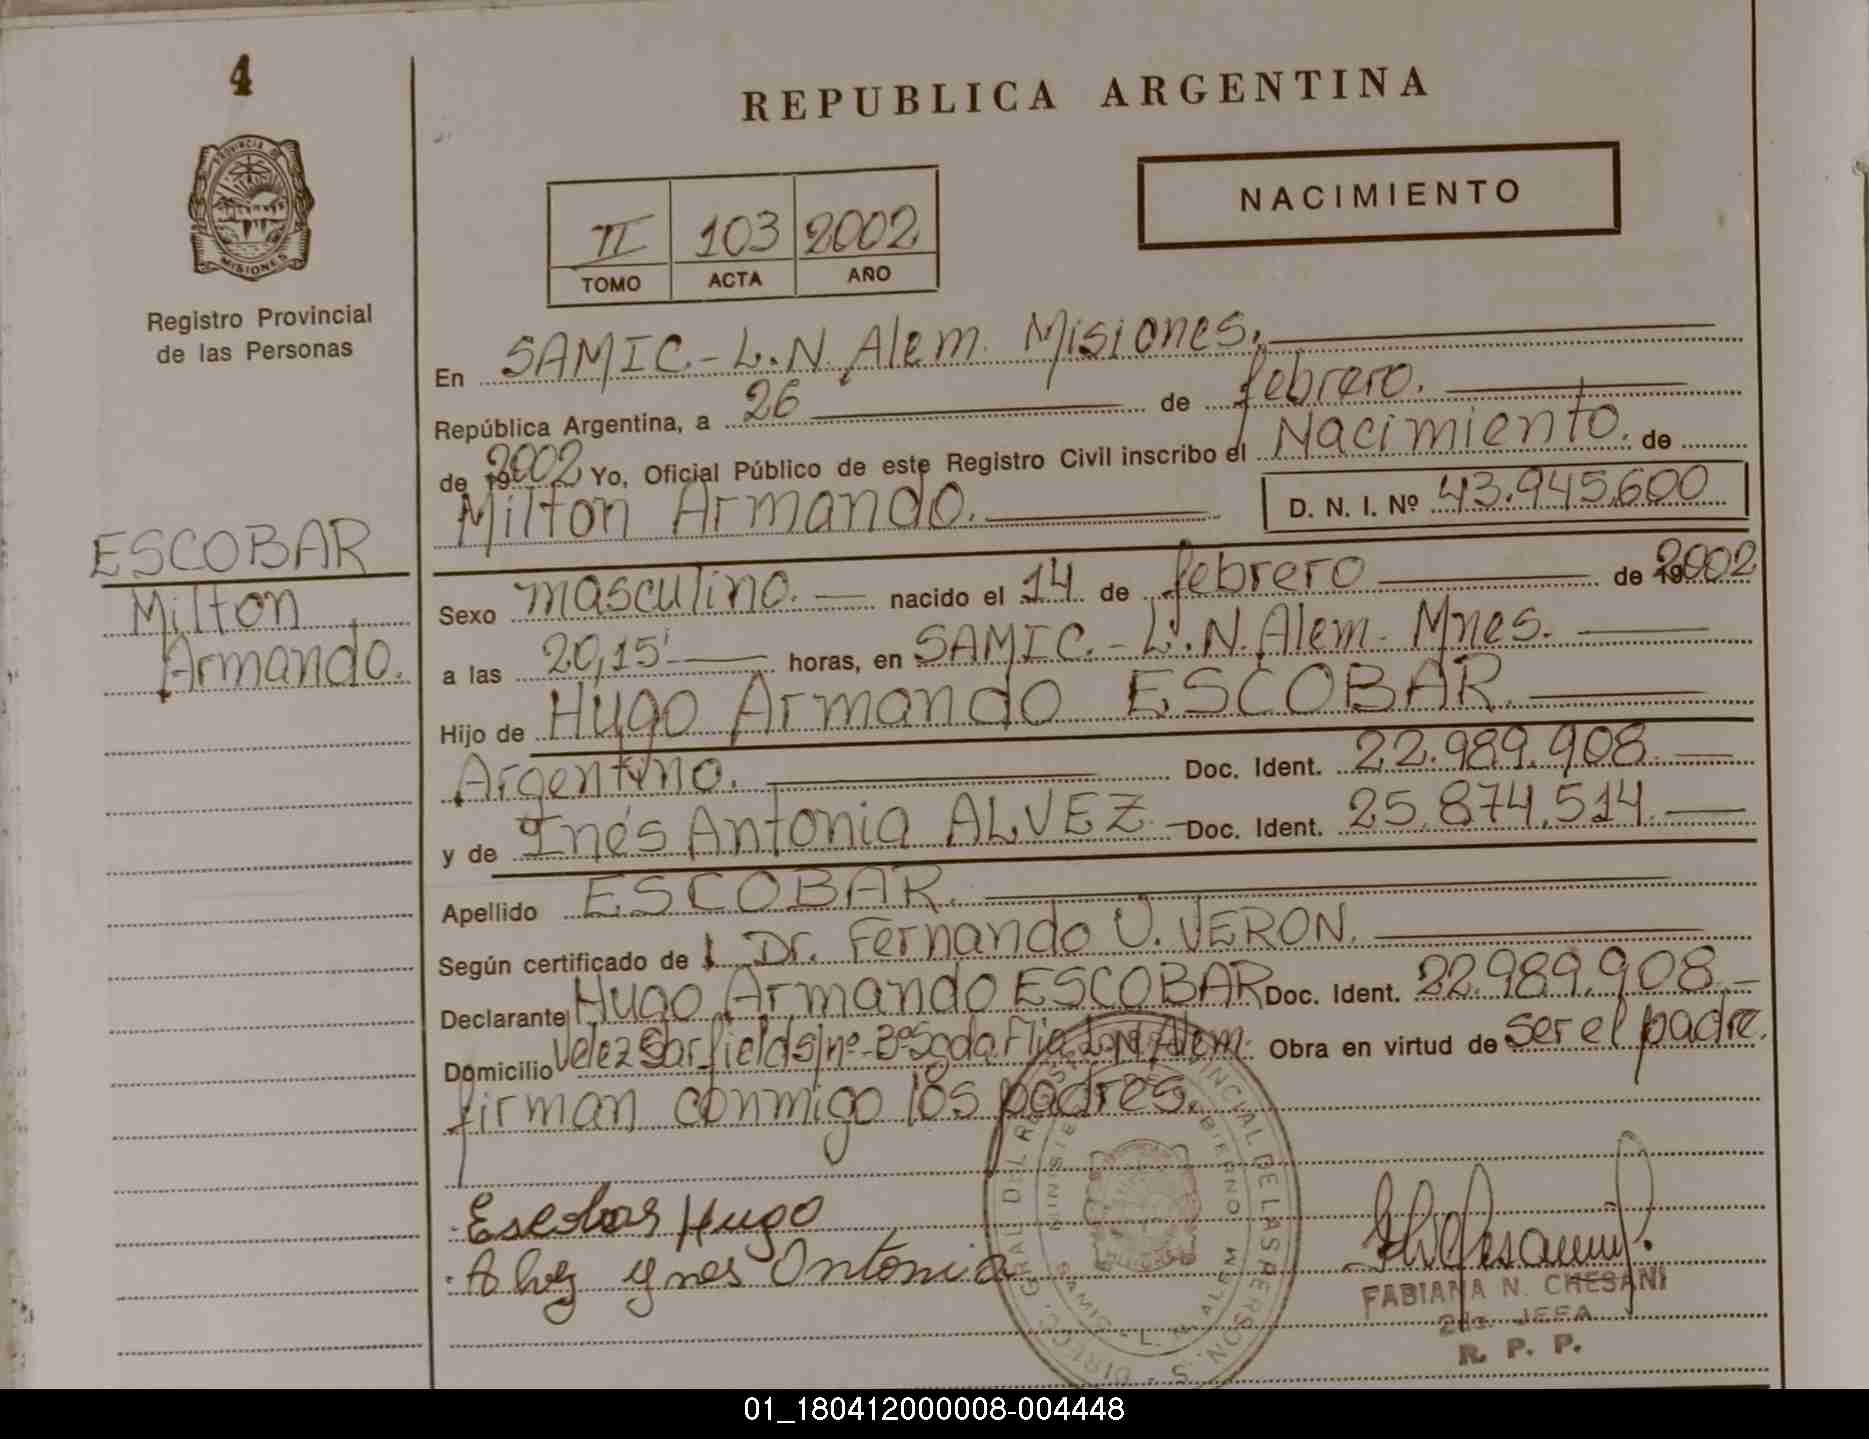 4
PROVINCIA DE
MISIONES
Registro Provincial
de las Personas
ESCOBAR
Milton
Armando.
REPUBLICA ARGENTINA
NACIMIENTO
II 103 2002
TOMO ACTA AÑO
En SAMIC.-L.N.Alem. Misiones.
República Argentina, a 26 de febrero.
de 192002 Yo, Oficial Público de este Registro Civil inscribo el Nacimiento. de
Milton Armando. D. N. I. Nº 43.945.600
Sexo masculino. nacido el 14 de febrero de 192002
a las 20,15' horas, en SAMIC.-L.N.Alem. Mnes.
Hijo de Hugo Armando ESCOBAR.
Argentino. Doc. Ident. 22.989.908.
y de Inés Antonia ALVEZ Doc. Ident. 25.874.514.
Apellido ESCOBAR.
Según certificado de l Dr. Fernando U. VERON.
Declarante Hugo Armando ESCOBAR Doc. Ident. 22.989.908.
Domicilio Velez Sarfield s/nº-Bº Sgda Flia L.N.Alem. Obra en virtud de ser el padre.
firman conmigo los padres.
Escobar Hugo
Alvez ynes Antonia
FABIANA N. CHESANI
2da. JEFA
R. P. P.
DIRECC. GRAL. DEL REG. PROVINCIAL DE LAS PERSON.
SAMIC - L. N. ALEM
01_180412000008-004448